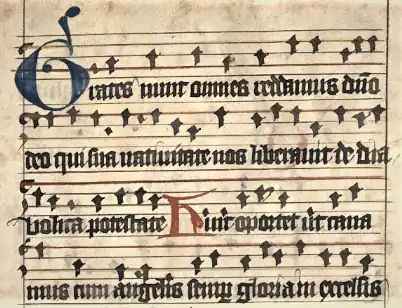 Grates nunc omnes reddamus dn̄o
deo qui sua nativitate nos liberavit de dia
bolica potestate Huic oportet ut cana
mus cum angelis semp gloria in excelsis